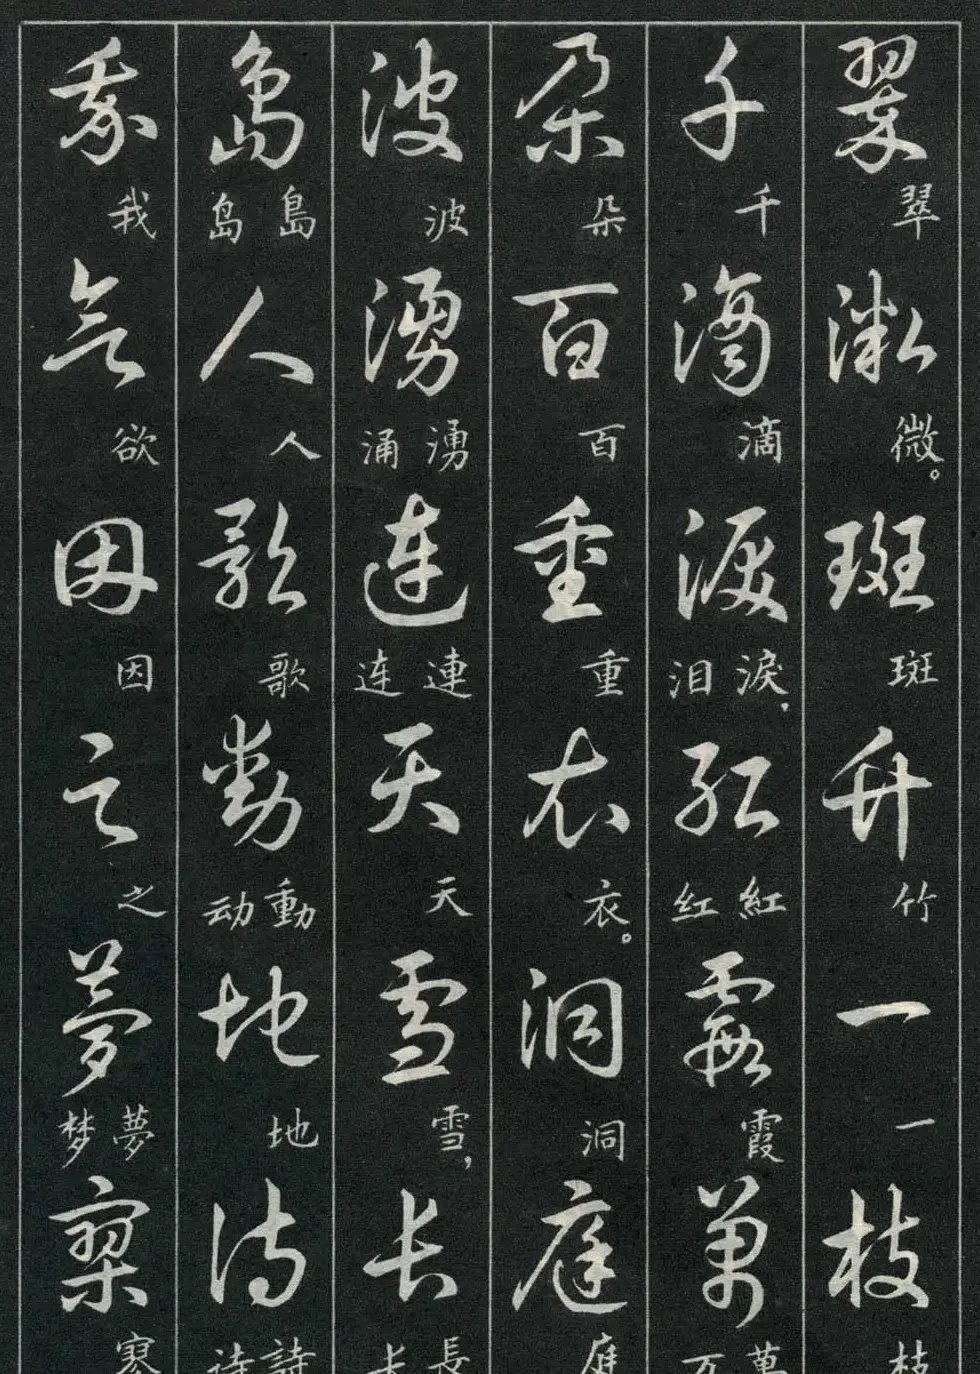 翠微斑竹一枝
翠微。斑竹一枝
千滴淚紅霞萬
千滴淚,泪紅红霞萬万
朵百重衣洞庭
朵百重衣。洞庭
波湧連天雪長
波湧涌連连天雪,長长
島人歌動地詩
島岛人歌動动地詩诗
我欲因之夢寥
我欲因之夢梦寥